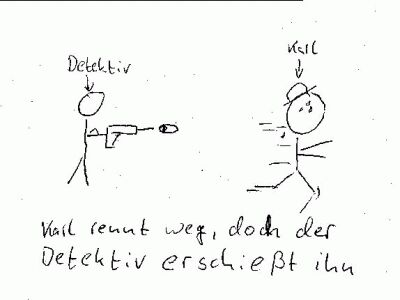 Detektiv
Karl
Karl rennt weg, doch der
Detektiv erschießt ihn